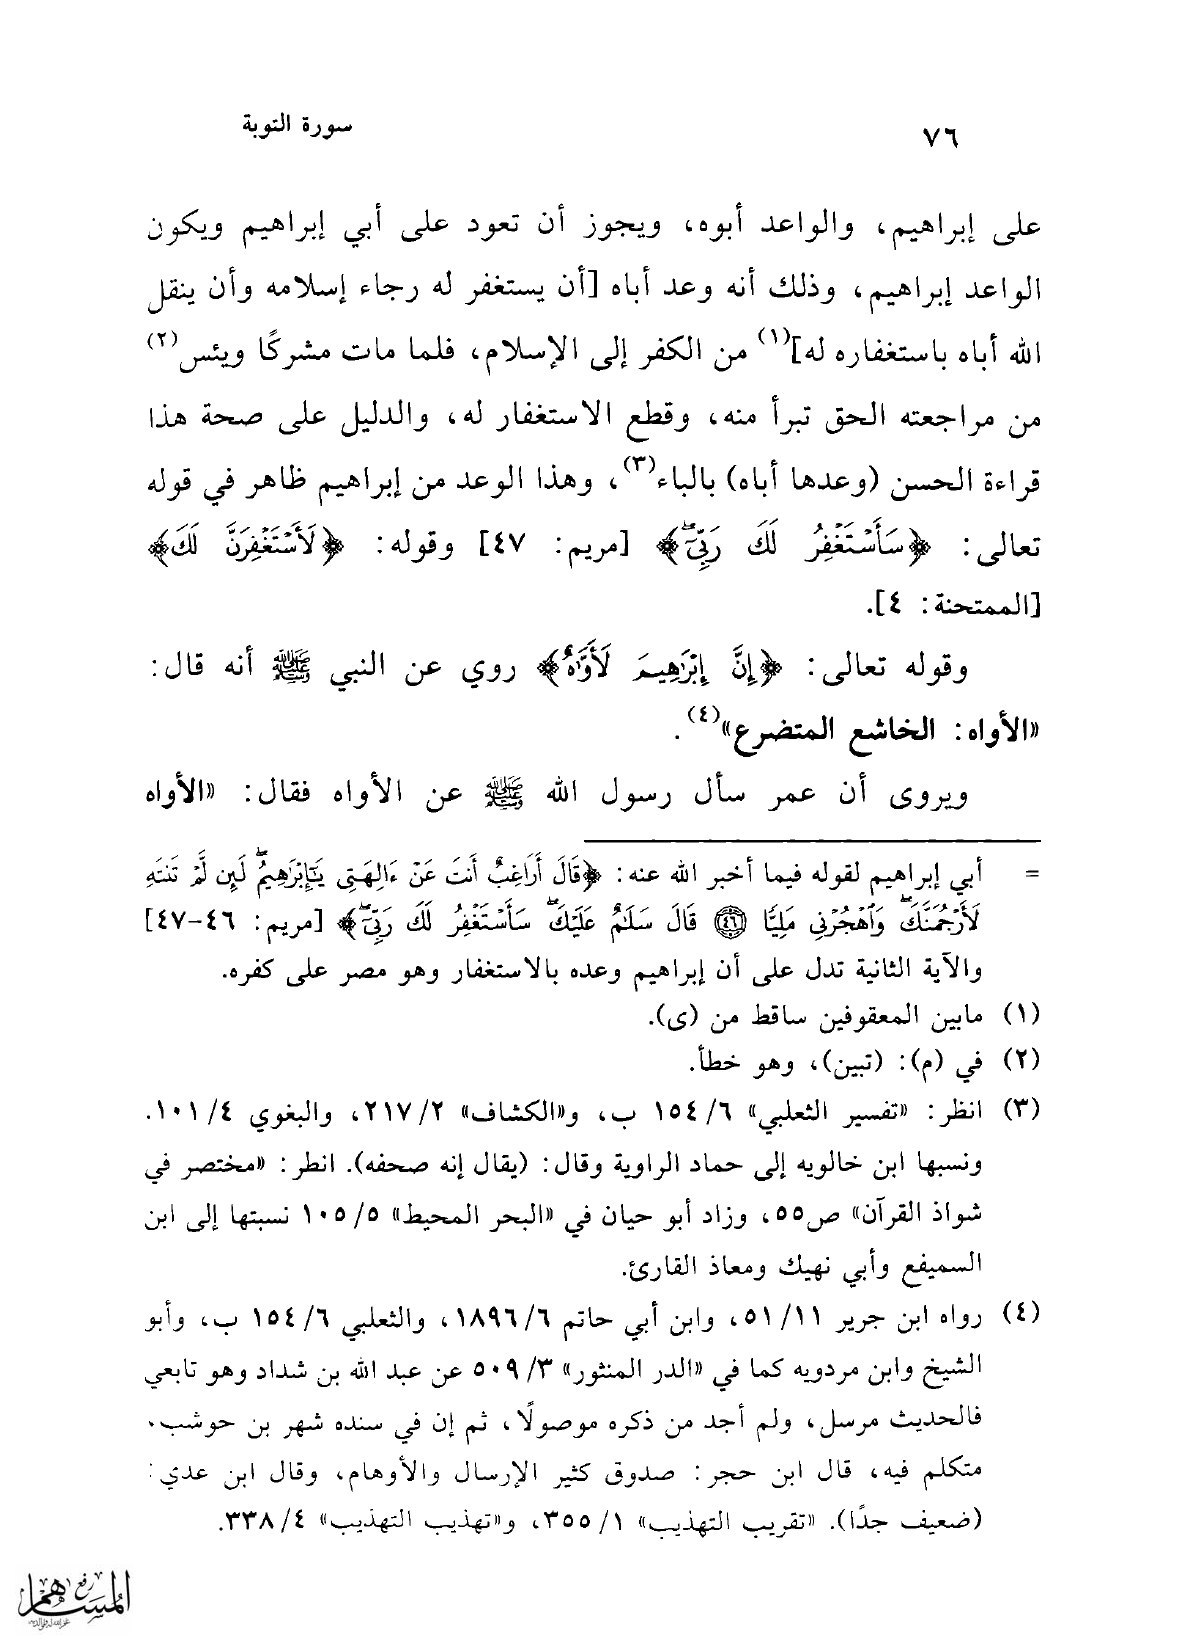 ٧٦
سورة التوبة
على إبراهيم، والواعد أبوه، ويجوز أن تعود على أبي إبراهيم ويكون
الواعد إبراهيم، وذلك أنه وعد أباه [أن يستغفر له رجاء إسلامه وأن ينقل
الله أباه باستغفاره له](١) من الكفر إلى الإسلام، فلما مات مشركًا ويئس(٢)
من مراجعته الحق تبرأ منه، وقطع الاستغفار له، والدليل على صحة هذا
قراءة الحسن (وعدها أباه) بالباء(٣)، وهذا الوعد من إبراهيم ظاهر في قوله
تعالى: ﴿سَأَسْتَغْفِرُ لَكَ رَبِّيٓۖ﴾ [مريم: ٤٧] وقوله: ﴿لَأَسْتَغْفِرَنَّ لَكَ﴾
[الممتحنة: ٤].
وقوله تعالى: ﴿إِنَّ إِبْرَٰهِيمَ لَأَوَّٰهٌ﴾ روي عن النبي ﷺ أنه قال:
«الأواه: الخاشع المتضرع»(٤).
ويروى أن عمر سأل رسول الله ﷺ عن الأواه فقال: «الأواه
= أبي إبراهيم لقوله فيما أخبر الله عنه: ﴿قَالَ أَرَاغِبٌ أَنتَ عَنْ ءَالِهَتِى يَٰٓإِبْرَٰهِيمُۖ لَئِن لَّمْ تَنتَهِ
لَأَرْجُمَنَّكَۖ وَٱهْجُرْنِى مَلِيًّا ٤٦ قَالَ سَلَٰمٌ عَلَيْكَۖ سَأَسْتَغْفِرُ لَكَ رَبِّيٓۖ﴾ [مريم: ٤٦-٤٧]
والآية الثانية تدل على أن إبراهيم وعده بالاستغفار وهو مصر على كفره.
(١) مابين المعقوفين ساقط من (ى).
(٢) في (م): (تبين)، وهو خطأ.
(٣) انظر: «تفسير الثعلبي» ٦/ ١٥٤ ب، و«الكشاف» ٢/ ٢١٧، والبغوي ٤/ ١٠١.
ونسبها ابن خالويه إلى حماد الراوية وقال: (يقال إنه صحفه). انطر: «مختصر في
شواذ القرآن» ص٥٥، وزاد أبو حيان في «البحر المحيط» ٥/ ١٠٥ نسبتها إلى ابن
السميفع وأبي نهيك ومعاذ القارئ.
(٤) رواه ابن جرير ١١/ ٥١، وابن أبي حاتم ٦/ ١٨٩٦، والثعلبي ٦/ ١٥٤ ب، وأبو
الشيخ وابن مردويه كما في «الدر المنثور» ٣/ ٥٠٩ عن عبد الله بن شداد وهو تابعي
فالحديث مرسل، ولم أجد من ذكره موصولًا، ثم إن في سنده شهر بن حوشب.
متكلم فيه، قال ابن حجر: صدوق كثير الإرسال والأوهام، وقال ابن عدي:
(ضعيف جدًا). «تقريب التهذيب» ١/ ٣٥٥، و«تهذيب التهذيب» ٤/ ٣٣٨.